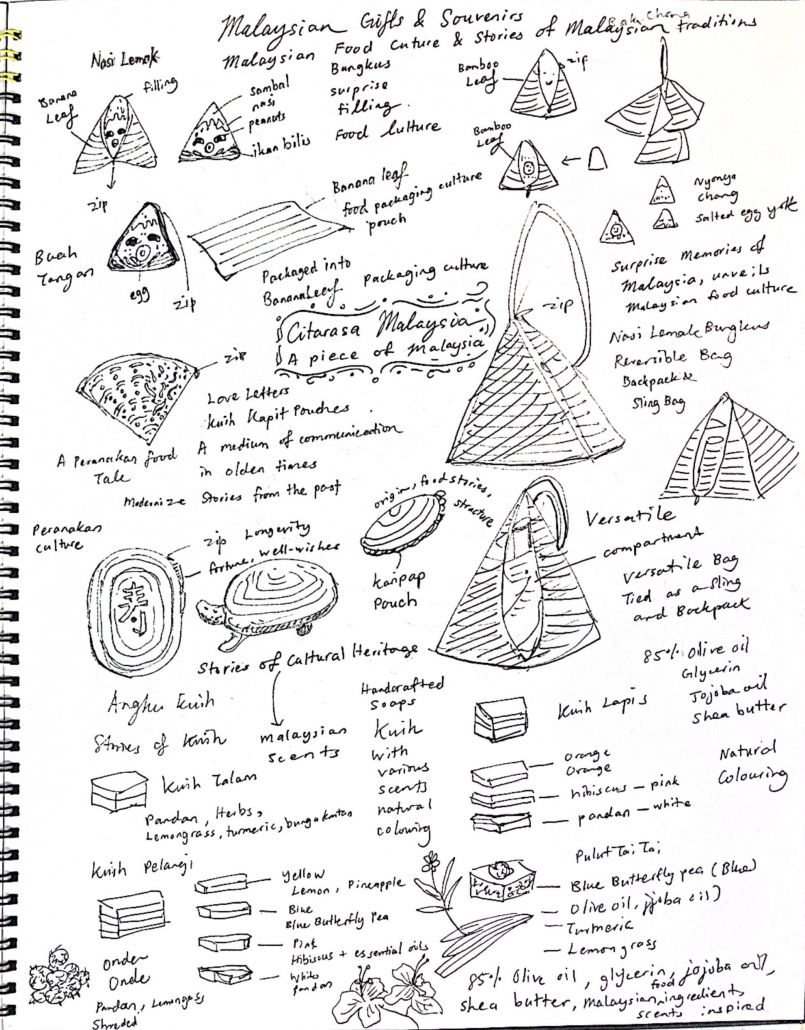 Malaysian Gifts & Souvenirs
Malaysian Food Cuture & Stories of Malaysian traditions
Bak Chang
Nasi Lemak
Banana
Leaf
filling
zip
sambal
nasi
peanuts
ikan bilis
Bungkus
surprise
filling.
Food Culture
Bamboo
Leaf
zip
Bamboo
Leaf
Nyonya
chang
salted egg yolk
Buah
Tangan
egg
zip
Banana leaf
food packaging culture
pouch
Packaged into
Banana Leef
packaging culture
Citarasa Malaysia
A piece of Malaysia
zip
Surprise Memories of
Malaysia, unveils
Malaysian food culture
Nasi Lemak Bungkus
Reversible Bag
Backpack &
Sling Bag
zip
Love Letters
Kuih Kapit Pouches.
A medium of communication
in olden times
A Peranakan food
Tale
Modernize Stories from the past
Peranakan
culture
zip
Longevity
fortune, well-wishes
寿
origin, food stories,
structure
karipap
Pouch
Versatile
compartment
Versatile Bag
Tied as a sling
and Backpack
Stories of Cultural Heritage
Angku Kuih
Stories of Kuih
malaysian
scents
Handcrafted
Soaps
Kuih
with
various
scents
natural
colouring
Kuih Talam
Pandan, Herbs,
Lemongrass, turmeric, bunga kantan
Kuih Lapis
85% Olive oil
Glycerin
Jojoba oil
Shea butter
Orange
Orange
hibiscus - pink
pandan - white
Natural
Colouring
Kuih Pelangi
Yellow
Lemon, Pineapple
Blue
Blue Butterfly Pea
Pink
Hibiscus + essential oils
White
Pandan
Onder
Onde
Pandan, Lemongrass
Shreded
Pulut Tai Tai
Blue Butterfly pea (Blue)
Olive oil, jjoba oil)
Turmeric
Lemongrass
85% Olive oil, glycerin, jojoba oil,
shea butter, malaysian food ingredients
scents inspired